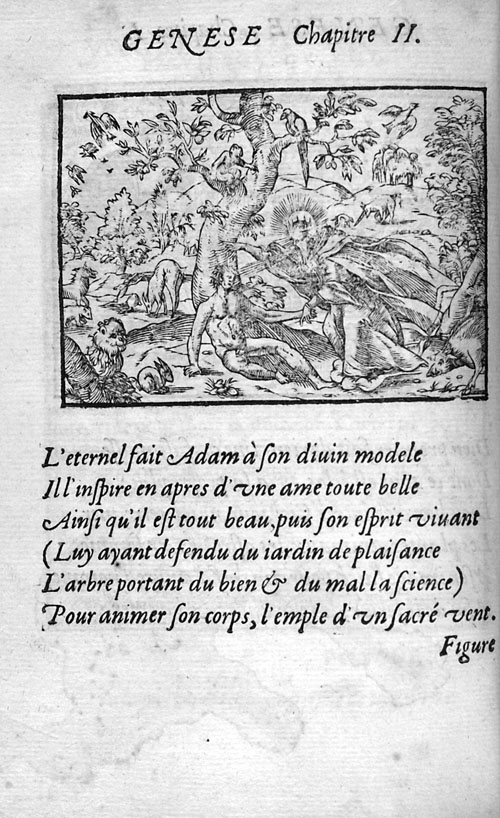 GENESE Chapitre II.
L'eternel fait Adam à ſon diuin modele
Il l'inſpire en apres d'vne ame toute belle
Ainſi qu'il eſt tout beau, puis ſon eſprit viuant
(Luy ayant defendu du iardin de plaiſance
L'arbre portant du bien & du mal la ſcience)
Pour animer ſon corps, l'emple d'vn ſacré vent.
Figure